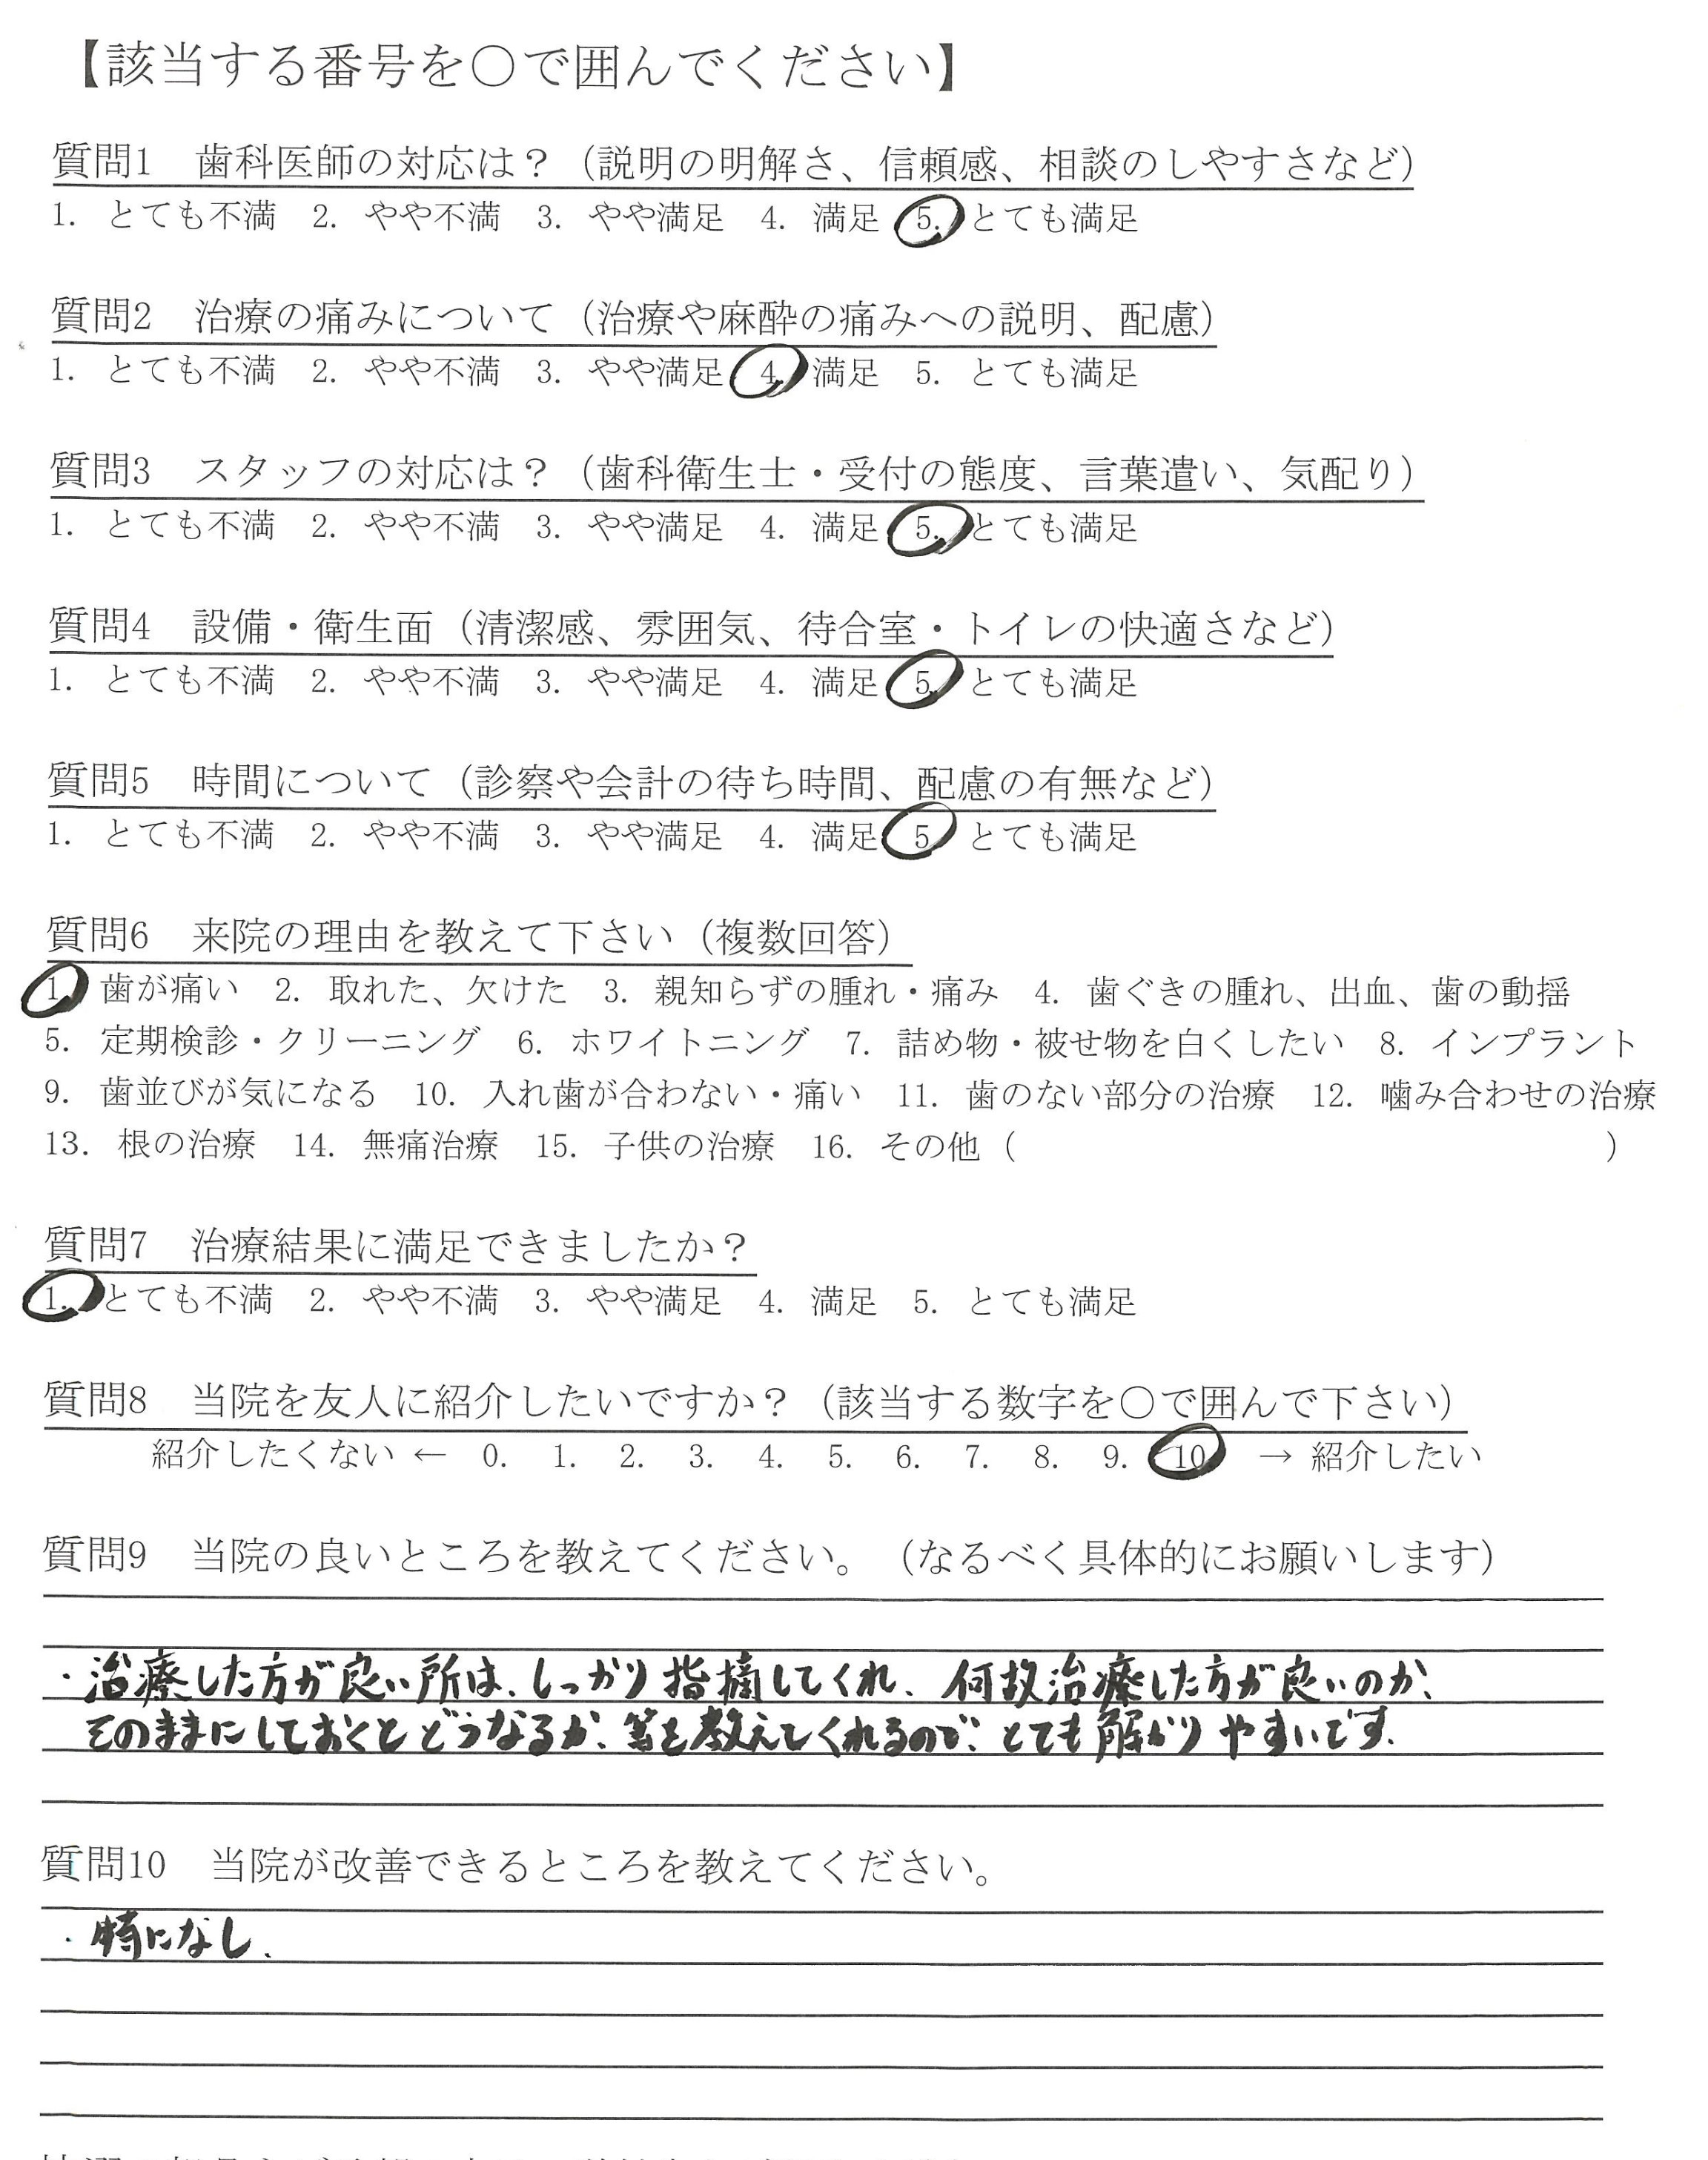 【該当する番号を○で囲んでください】
質問1　歯科医師の対応は？（説明の明解さ、信頼感、相談のしやすさなど）
1. とても不満　2. やや不満　3. やや満足　4. 満足　5. とても満足
質問2　治療の痛みについて（治療や麻酔の痛みへの説明、配慮）
1. とても不満　2. やや不満　3. やや満足　4. 満足　5. とても満足
質問3　スタッフの対応は？（歯科衛生士・受付の態度、言葉遣い、気配り）
1. とても不満　2. やや不満　3. やや満足　4. 満足　5. とても満足
質問4　設備・衛生面（清潔感、雰囲気、待合室・トイレの快適さなど）
1. とても不満　2. やや不満　3. やや満足　4. 満足　5. とても満足
質問5　時間について（診察や会計の待ち時間、配慮の有無など）
1. とても不満　2. やや不満　3. やや満足　4. 満足　5. とても満足
質問6　来院の理由を教えて下さい（複数回答）
1. 歯が痛い　2. 取れた、欠けた　3. 親知らずの腫れ・痛み　4. 歯ぐきの腫れ、出血、歯の動揺
5. 定期検診・クリーニング　6. ホワイトニング　7. 詰め物・被せ物を白くしたい　8. インプラント
9. 歯並びが気になる　10. 入れ歯が合わない・痛い　11. 歯のない部分の治療　12. 噛み合わせの治療
13. 根の治療　14. 無痛治療　15. 子供の治療　16. その他（　　　　　　　　　）
質問7　治療結果に満足できましたか？
1. とても不満　2. やや不満　3. やや満足　4. 満足　5. とても満足
質問8　当院を友人に紹介したいですか？（該当する数字を○で囲んで下さい）
紹介したくない ← 0.　1.　2.　3.　4.　5.　6.　7.　8.　9.　10.　→ 紹介したい
質問9　当院の良いところを教えてください。（なるべく具体的にお願いします）
・治療した方が良い所は、しっかり指摘してくれ、何故治療した方が良いのか、
そのままにしておくとどうなるか、等を教えてくれるので、とても解かりやすいです.
質問10　当院が改善できるところを教えてください。
・特になし、